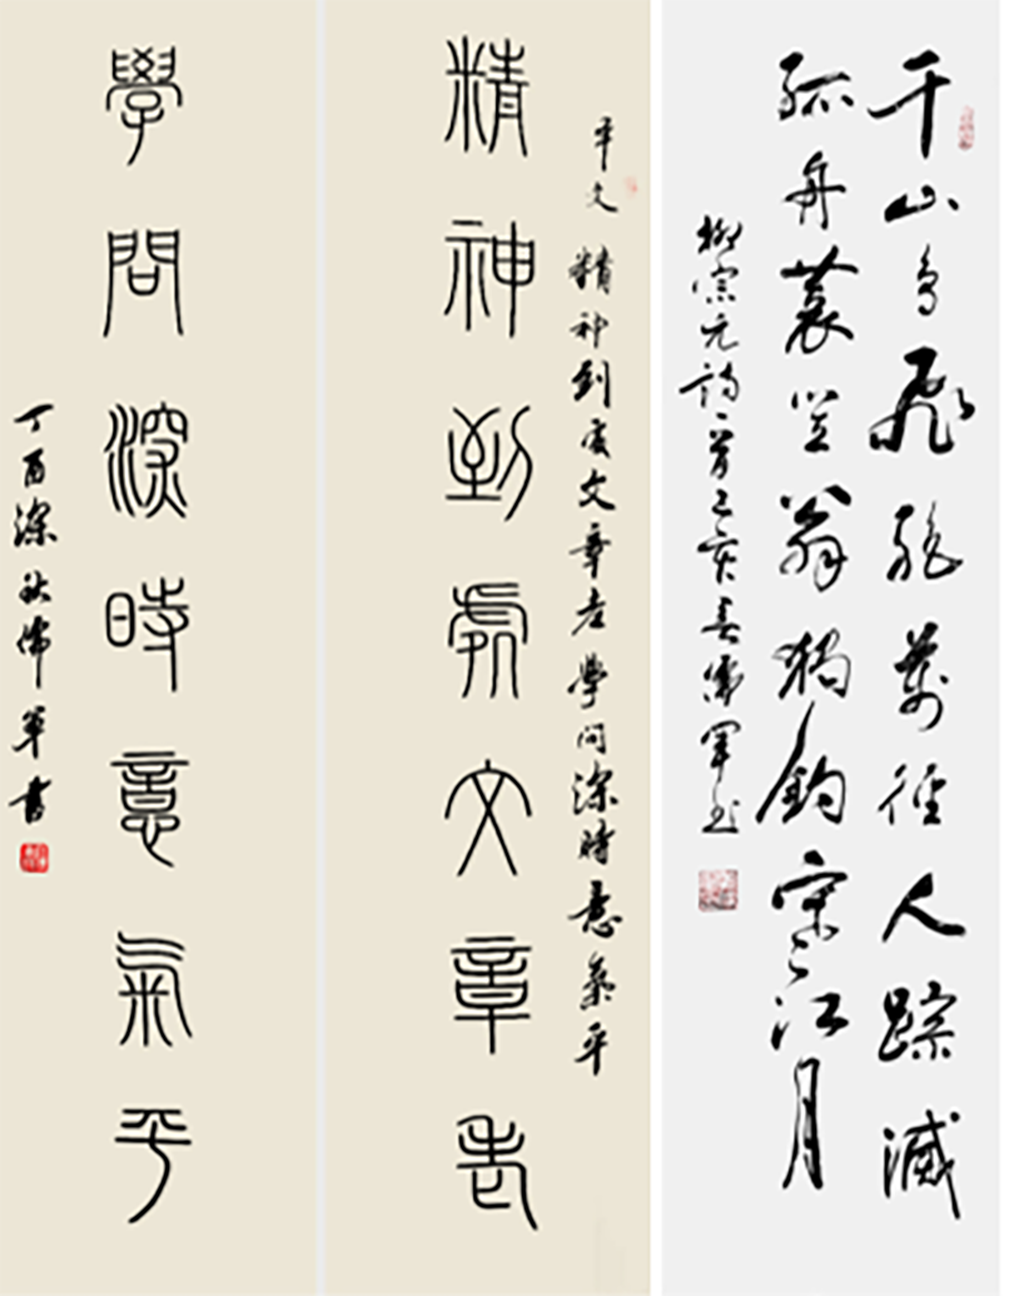 千山鳥飛絕萬徑人踪滅
孤舟蓑笠翁獨釣寒江月
柳宗元詩一首己亥春衛軍書
文 精神到處文章老學問深時意氣平
精神到處文章老
學問深時意氣平
丁酉深秋衛軍書